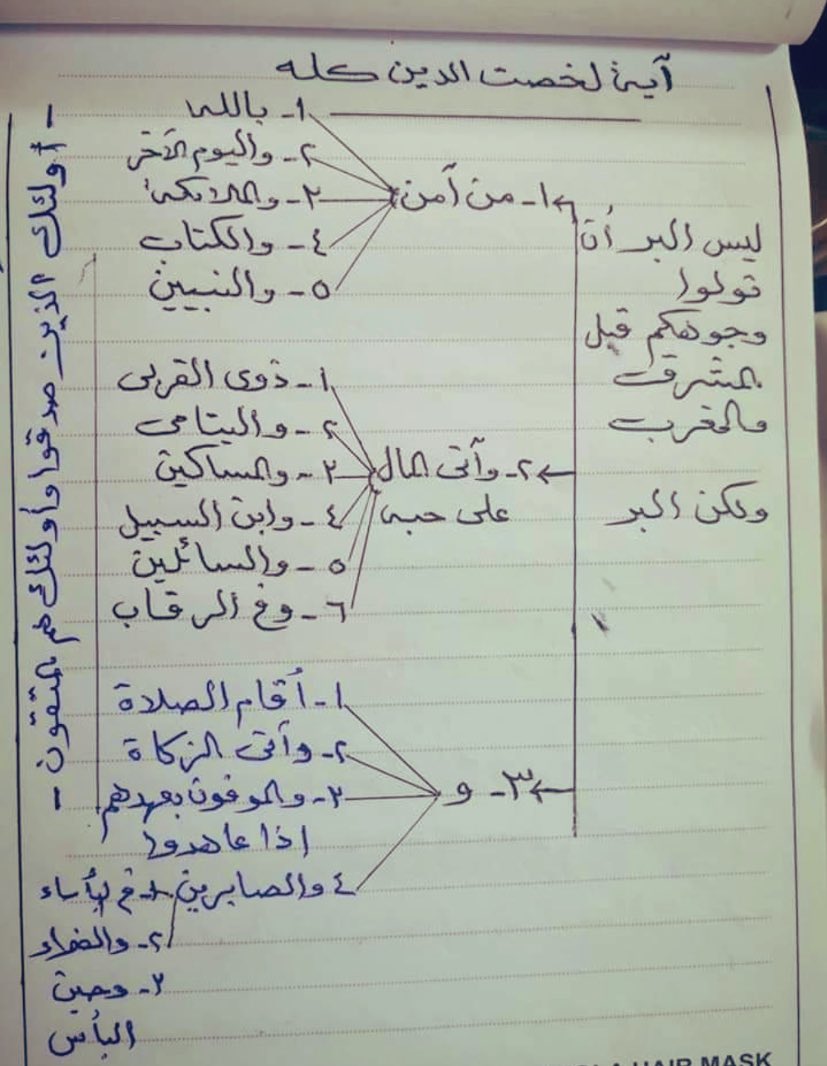 آية لخصت الدين كله
ليس البر أن
تولوا
وجوهكم قبل
المشرق
والمغرب
ولكن البر
١- من آمن
١- بالله
٢- واليوم الآخر
٣- والملائكة
٤- والكتاب
٥- والنبيين
٢- وآتى المال
على حبه
١- ذوى القربى
٢- واليتامى
٣- والمساكين
٤- وابن السبيل
٥- والسائلين
٦- وفي الرقاب
٣- و
١- أقام الصلاة
٢- وآتى الزكاة
٣- والموفون بعهدهم
إذا عاهدوا
٤ والصابرين
١- في البأساء
٢- والضراء
٣- وحين
البأس
- أولئك الذين صدقوا وأولئك هم المتقون -
HAIR MASK